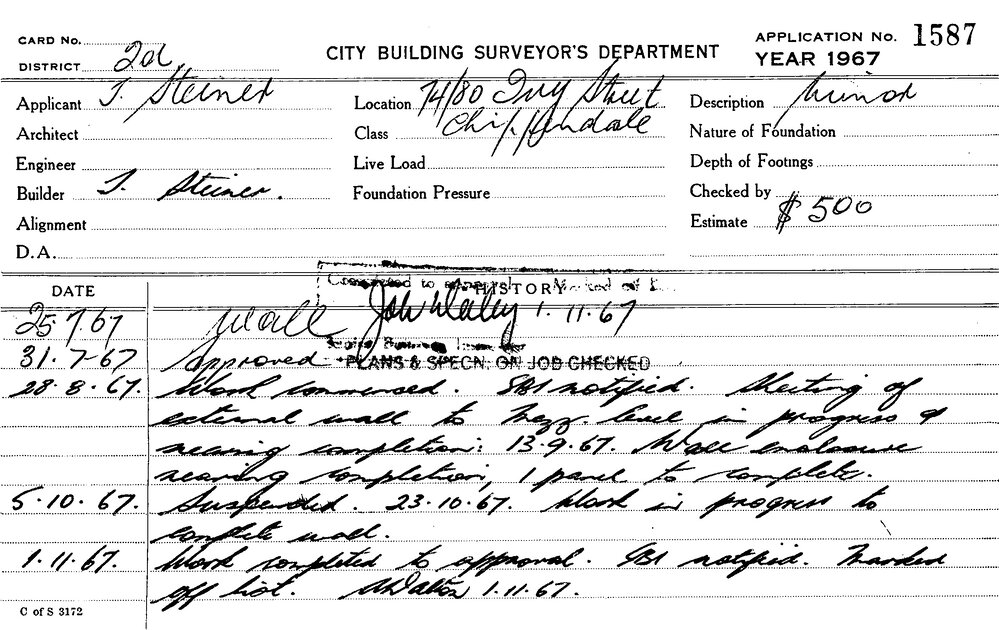 CARD No.
DISTRICT 2d
CITY BUILDING SURVEYOR'S DEPARTMENT
APPLICATION No. 1587
YEAR 1967
Applicant J. Steiner
Location 74/80 Ivy Street
Description Minor
Architect
Class Chippendale
Nature of Foundation
Engineer
Live Load
Depth of Footings
Builder J. Steiner.
Foundation Pressure
Checked by
Alignment
Estimate $500
D.A.
DATE
HISTORY
25.7.67 Wall
1.11.67
31.7-67 Approved
PLANS & SPECN: ON JOB CHECKED
28.8.67. Work commenced. SBI notified. Sheeting of
external wall to Mezz. level in progress &
nearing completion: 13.9.67. Wall enclosure
nearing completion, 1 panel to complete.
5.10.67. Suspended. 23.10.67. Work in progress to
complete wall.
1.11.67. Work completed to approval. SBI notified. Marked
off list. 1.11.67.
C of S 3172